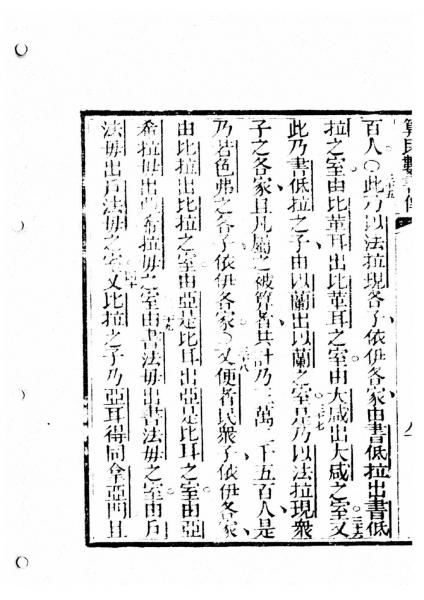 算民數書傳
百人○此乃以法拉現各子依伊各家由書低拉出書低
三十五
拉之室由比革耳出比革耳之室由大咸出大咸之室又
三十六
此乃書低拉之子由以蘭出以蘭之室是乃以法拉現衆
三十七
子之各家且凡屬之被算者共計乃三萬二千五百人是
乃若色弗之各子依伊各家○又便者民衆子依伊各家
三十八
由比拉出比拉之室由亞是比耳出亞是比耳之室由亞
希拉毋出亞希拉毋之室由書法毋出書法毋之室由戶
三十九
法毋出戶法毋之室又比拉之子乃亞耳得同拿亞門且
四十